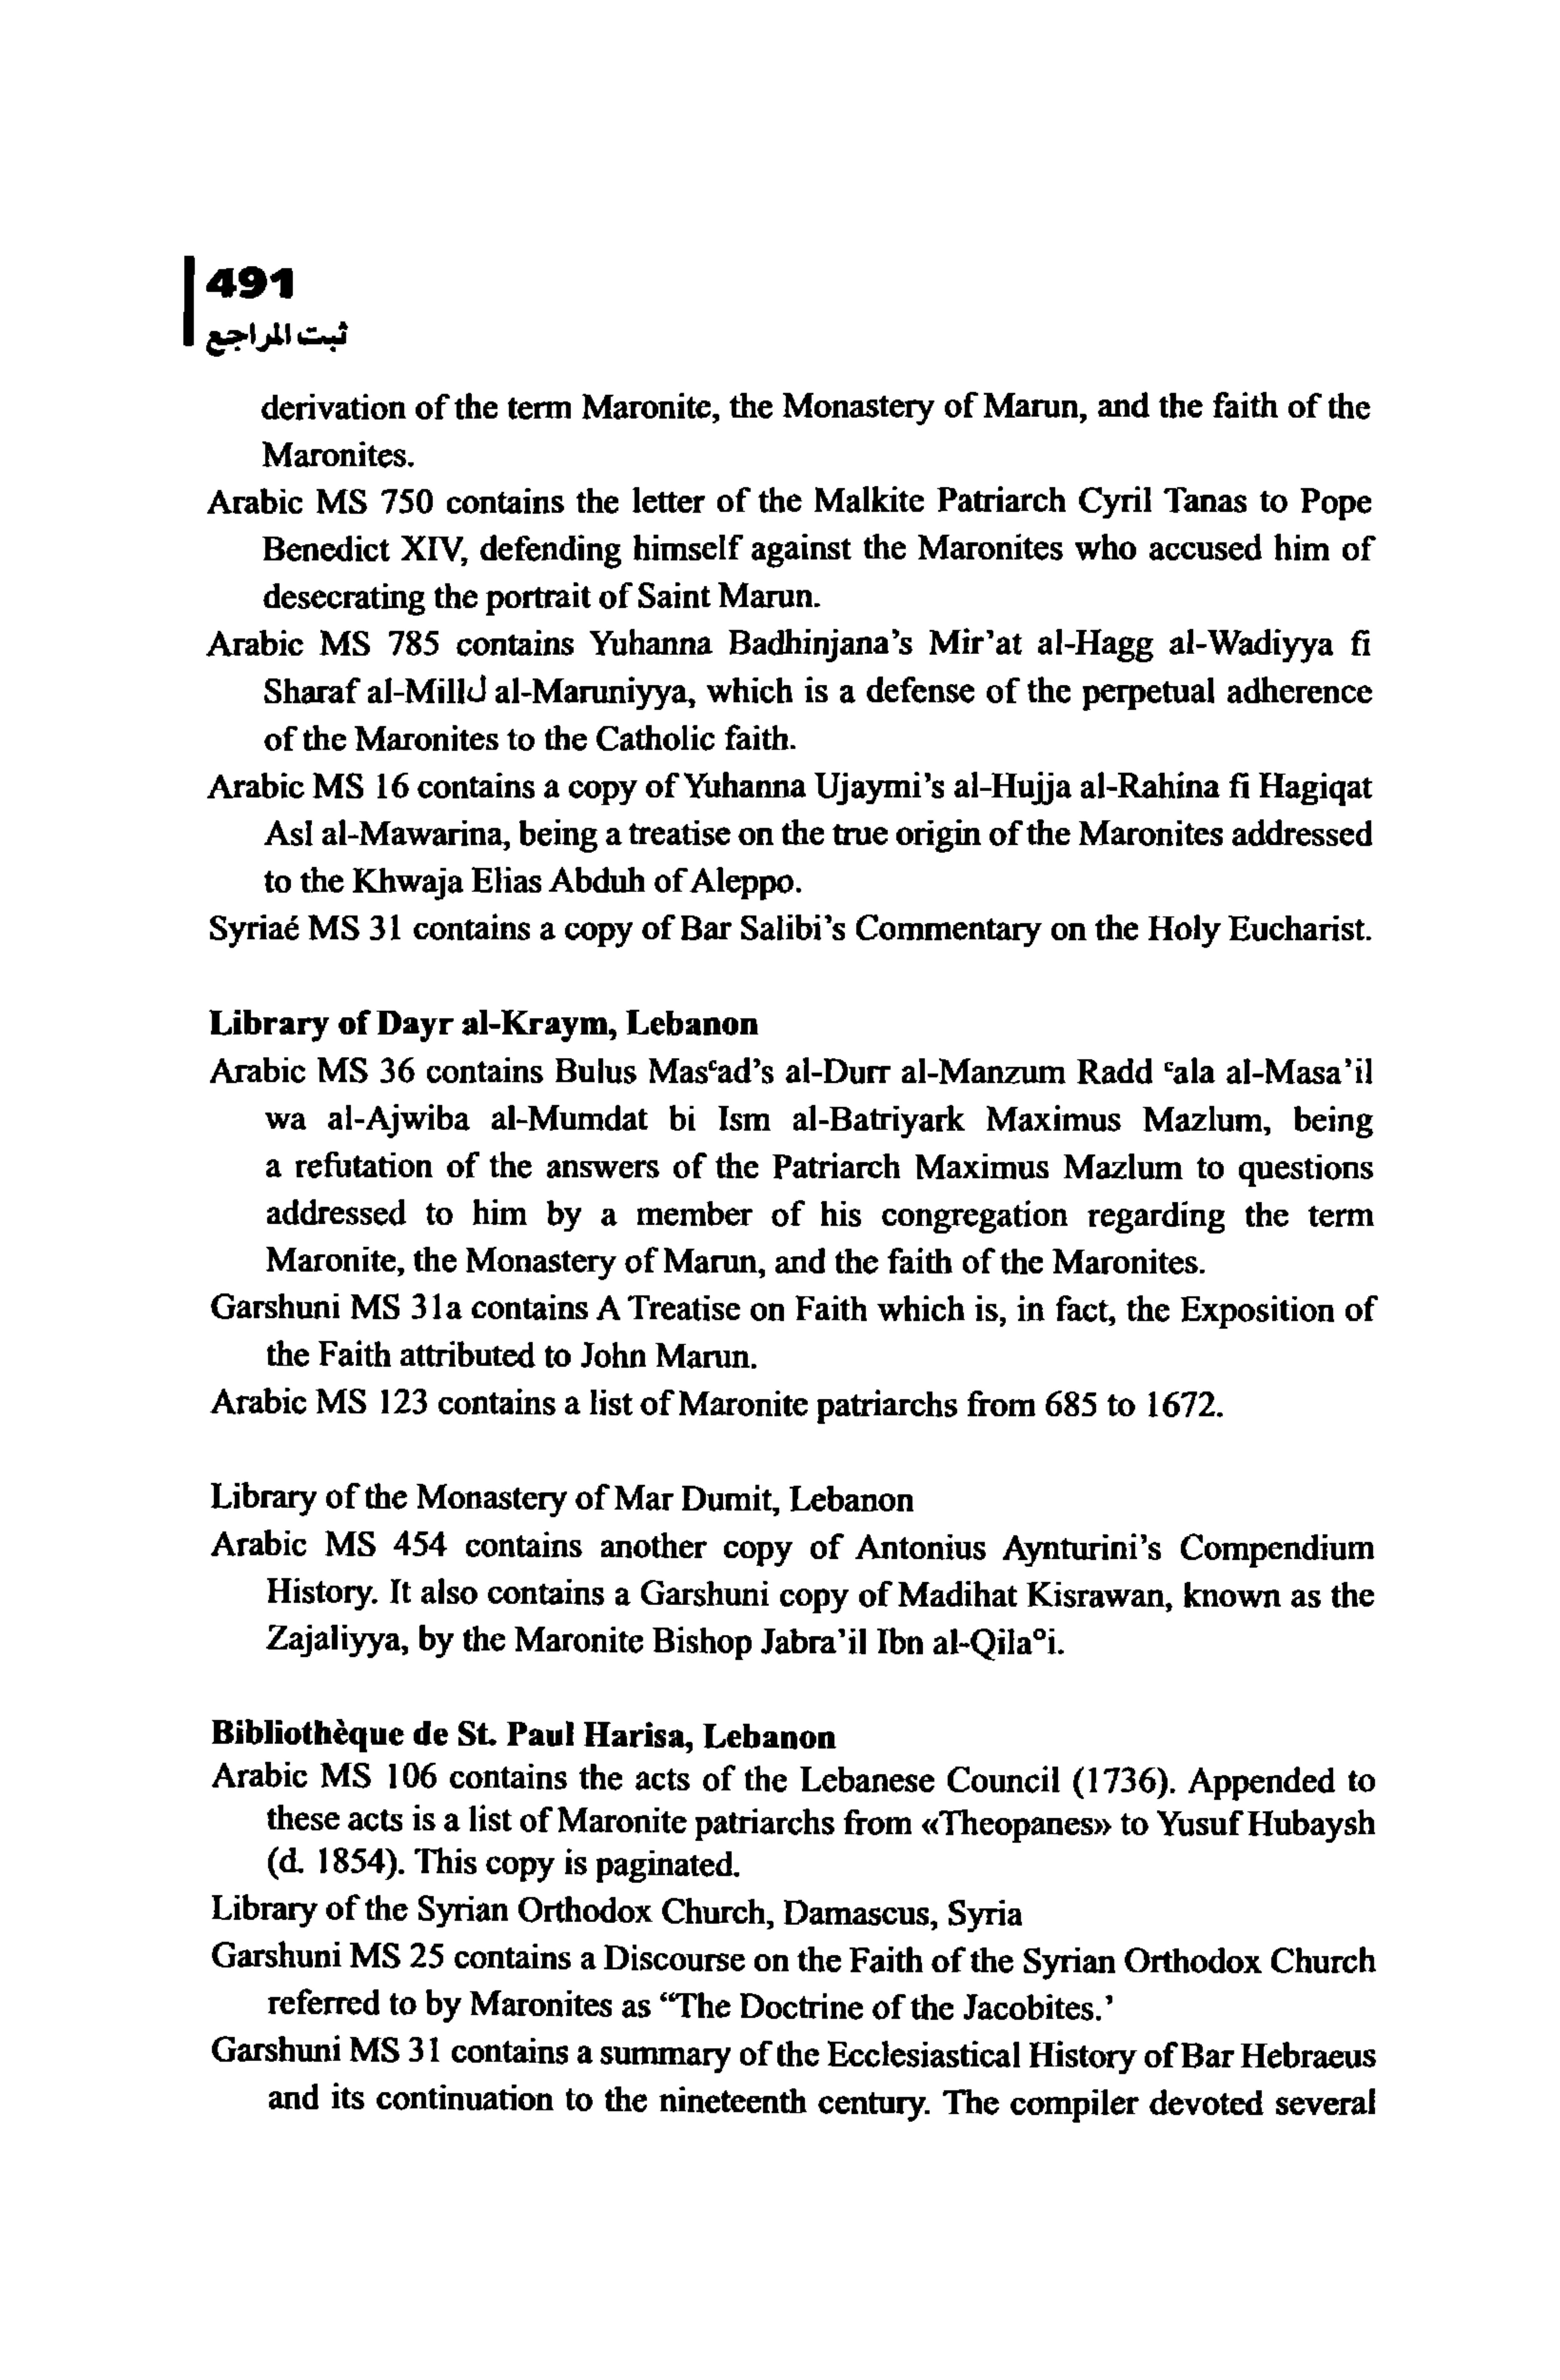 491
ثبت المراجع
derivation of the term Maronite, the Monastery of Marun, and the faith of the
Maronites.
Arabic MS 750 contains the letter of the Malkite Patriarch Cyril Tanas to Pope
Benedict XIV, defending himself against the Maronites who accused him of
desecrating the portrait of Saint Marun.
Arabic MS 785 contains Yuhanna Badhinjana's Mir'at al-Hagg al-Wadiyya fi
Sharaf al-Millل al-Maruniyya, which is a defense of the perpetual adherence
of the Maronites to the Catholic faith.
Arabic MS 16 contains a copy of Yuhanna Ujaymi's al-Hujja al-Rahina fi Hagiqat
Asl al-Mawarina, being a treatise on the true origin of the Maronites addressed
to the Khwaja Elias Abduh of Aleppo.
Syriaé MS 31 contains a copy of Bar Salibi's Commentary on the Holy Eucharist.
Library of Dayr al-Kraym, Lebanon
Arabic MS 36 contains Bulus Masᶜad's al-Durr al-Manzum Radd ᶜala al-Masa'il
wa al-Ajwiba al-Mumdat bi Ism al-Batriyark Maximus Mazlum, being
a refutation of the answers of the Patriarch Maximus Mazlum to questions
addressed to him by a member of his congregation regarding the term
Maronite, the Monastery of Marun, and the faith of the Maronites.
Garshuni MS 31a contains A Treatise on Faith which is, in fact, the Exposition of
the Faith attributed to John Marun.
Arabic MS 123 contains a list of Maronite patriarchs from 685 to 1672.
Library of the Monastery of Mar Dumit, Lebanon
Arabic MS 454 contains another copy of Antonius Aynturini's Compendium
History. It also contains a Garshuni copy of Madihat Kisrawan, known as the
Zajaliyya, by the Maronite Bishop Jabra'il Ibn al-Qila°i.
Bibliothèque de St. Paul Harisa, Lebanon
Arabic MS 106 contains the acts of the Lebanese Council (1736). Appended to
these acts is a list of Maronite patriarchs from «Theopanes» to Yusuf Hubaysh
(d. 1854). This copy is paginated.
Library of the Syrian Orthodox Church, Damascus, Syria
Garshuni MS 25 contains a Discourse on the Faith of the Syrian Orthodox Church
referred to by Maronites as “The Doctrine of the Jacobites.’
Garshuni MS 31 contains a summary of the Ecclesiastical History of Bar Hebraeus
and its continuation to the nineteenth century. The compiler devoted several